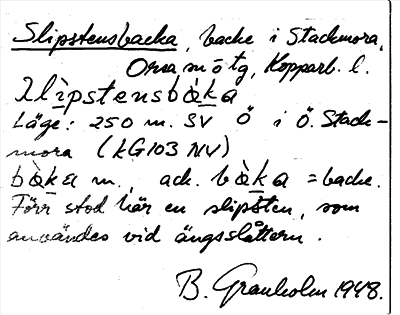 Slipstensbacka, backe i Stackmora,
Orsa sn ö tg, Kopparb. l.
slìpstensbàka
Läge: 250 m. SV Ö i Ö. Stack-
mora (KG103 NV)
bàka m., ack. bàka = backe.
Förr stod här en slipsten, som
användes vid ängsslåttern.
B. Granholm 1948.